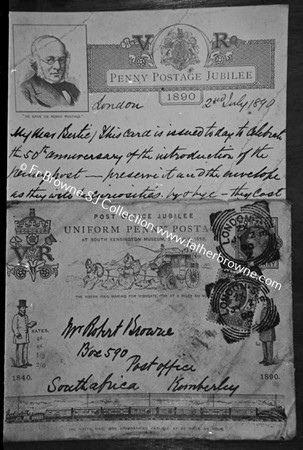 V R
PENNY POSTAGE JUBILEE
1890
"HE GAVE US PENNY POSTAGE"
London 2nd July 1890
My dear Bertie, This card is issued to-day to celebrate
the 50th anniversary of the introduction of the
Penny post — preserve it and the envelope
as they will be curiosities by & bye — they cost
© Fr Browne SJ Collection
www.fatherbrowne.com
POST OFFICE JUBILEE
UNIFORM PENNY POSTAGE
AT SOUTH KENSINGTON MUSEUM
V R
LONDON
Mr Robert Browne
Box 590
Post office
South africa Kimberley
1840. 1890.